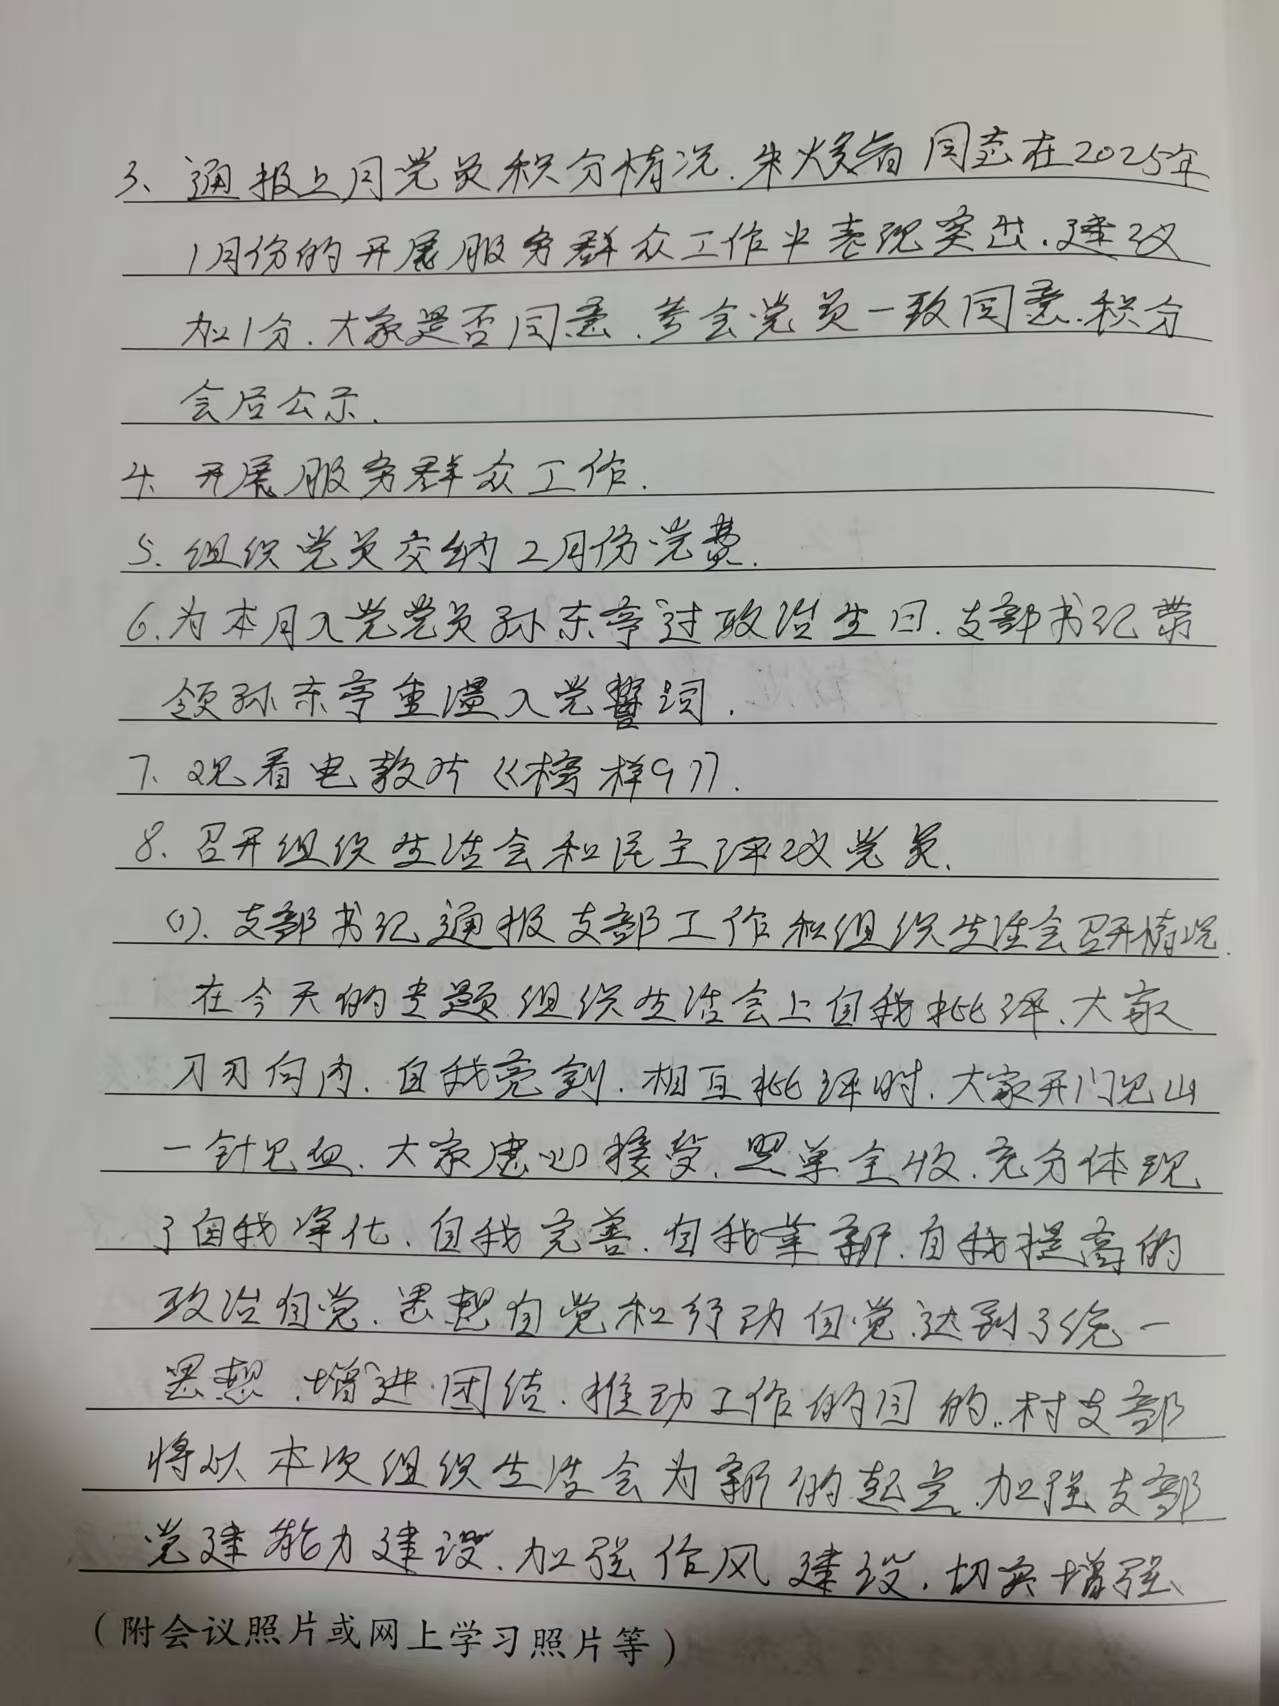 3、通报上月党员积分情况.朱焕省同志在2025年
1月份的开展服务群众工作中表现突出.建议
加1分.大家是否同意.参会党员一致同意.积分
会后公示.
4.开展服务群众工作.
5.组织党员交纳2月份党费.
6.为本月入党党员孙东亭过政治生日.支部书记带
领孙东亭重温入党誓词.
7、观看电教片《榜样9》.
8.召开组织生活会和民主评议党员.
(1).支部书记通报支部工作和组织生活会召开情况.
在今天的专题组织生活会上自我批评、大家
刀刃向内.自我亮剑.相互批评时.大家开门见山
一针见血.大家虚心接受.照单全收.充分体现
了自我净化.自我完善.自我革新.自我提高的
政治自觉.思想自觉和行动自觉.达到了统一
思想.增进团结.推动工作的目的..村支部
将以本次组织生活会为新的起点.加强支部
党建能力建设.加强作风建设.切实增强、
(附会议照片或网上学习照片等)